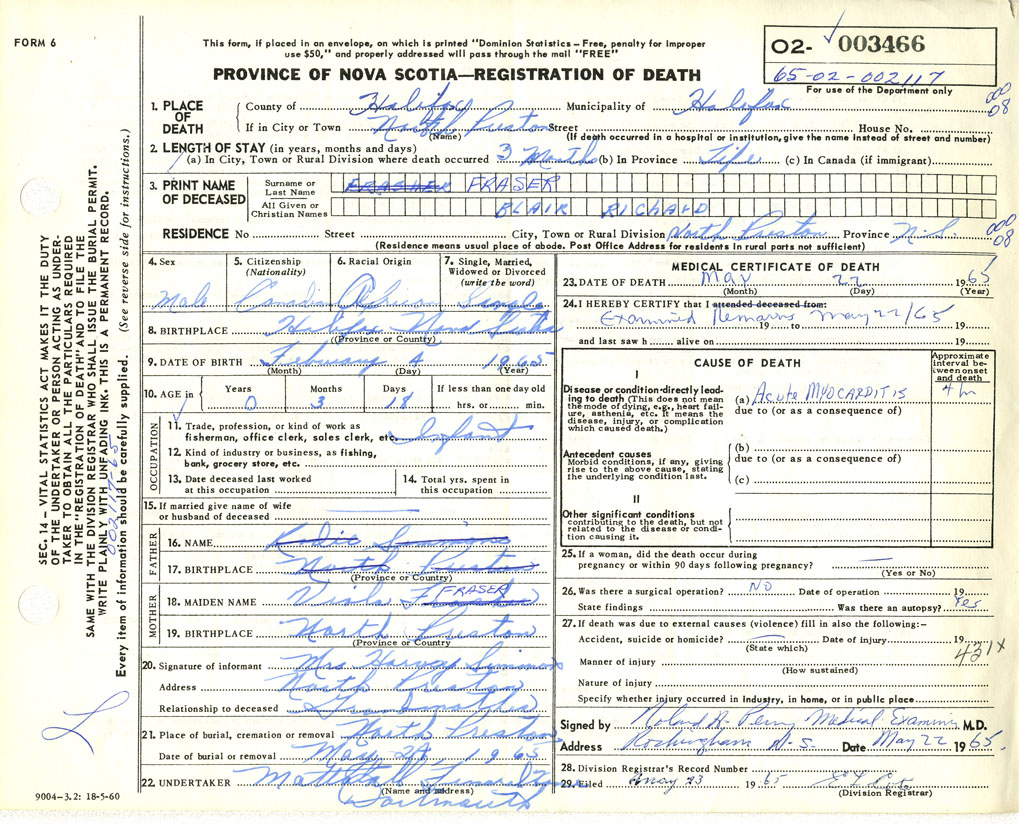 FORM 6
This form, if placed in an envelope, on which is printed "Dominion Statistics – Free, penalty for improper
use $50," and properly addressed will pass through the mail "FREE"
PROVINCE OF NOVA SCOTIA—REGISTRATION OF DEATH
02- 003466
65-02-002117
For use of the Department only
1. PLACE OF DEATH
County of Halifax Municipality of Halifax
000
08
If in City or Town North Preston Street House No.
(Name) (If death occurred in a hospital or institution, give the name instead of street and number)
2. LENGTH OF STAY (in years, months and days)
(a) In City, Town or Rural Division where death occurred 3 Months (b) In Province Life (c) In Canada (if immigrant)
3. PRINT NAME OF DECEASED
Surname or Last Name FRASER
All Given or Christian Names BLAIR RICHARD
RESIDENCE No Street City, Town or Rural Division North Preston Province N.S.
000
08
(Residence means usual place of abode. Post Office Address for residents in rural parts not sufficient)
4. Sex Male
5. Citizenship (Nationality) Canadian
6. Racial Origin African
7. Single, Married, Widowed or Divorced (write the word) Single
8. BIRTHPLACE Halifax Nova Scotia
(Province or Country)
9. DATE OF BIRTH February 4 1965
(Month) (Day) (Year)
10. AGE in Years 0 Months 3 Days 18 If less than one day old hrs. or min.
OCCUPATION
11. Trade, profession, or kind of work as fisherman, office clerk, sales clerk, etc. Infant
12. Kind of industry or business, as fishing, bank, grocery store, etc.
13. Date deceased last worked at this occupation
14. Total yrs. spent in this occupation
15. If married give name of wife or husband of deceased
FATHER
16. NAME Simmons
17. BIRTHPLACE North Preston
(Province or Country)
MOTHER
18. MAIDEN NAME Viola FRASER
19. BIRTHPLACE North Preston
(Province or Country)
20. Signature of informant Mrs Harvey Simmons
Address North Preston
Relationship to deceased
21. Place of burial, cremation or removal North Preston
Date of burial or removal May 24, 1965
22. UNDERTAKER Mattatall Funeral
(Name and address)
Dartmouth
MEDICAL CERTIFICATE OF DEATH
23. DATE OF DEATH May 22 1965
(Month) (Day) (Year)
24. I HEREBY CERTIFY that I attended deceased from:
Examined Remains May 22/65
19 to 19
and last saw h alive on 19
CAUSE OF DEATH
Approximate interval between onset and death
I
Disease or condition directly leading to death (This does not mean the mode of dying, e.g., heart failure, asthenia, etc. It means the disease, injury, or complication which caused death.)
(a) Acute MYOCARDITIS
due to (or as a consequence of)
Antecedent causes
Morbid conditions, if any, giving rise to the above cause, stating the underlying condition last.
(b)
due to (or as a consequence of)
(c)
II
Other significant conditions
contributing to the death, but not related to the disease or condition causing it.
25. If a woman, did the death occur during
pregnancy or within 90 days following pregnancy?
(Yes or No)
26. Was there a surgical operation? NO Date of operation 19
State findings Was there an autopsy? Yes
27. If death was due to external causes (violence) fill in also the following:-
Accident, suicide or homicide? Date of injury 19
(State which)
431x
Manner of injury
(How sustained)
Nature of injury
Specify whether injury occurred in industry, in home, or in public place
Signed by Roland A. Perry Medical Examiner M.D.
Address Rockingham N.S. Date May 22 1965
28. Division Registrar's Record Number
29. Filed May 23 1965
(Division Registrar)
SEC. 14 – VITAL STATISTICS ACT MAKES IT THE DUTY
OF THE UNDERTAKER OR PERSON ACTING AS UNDER-
TAKER TO OBTAIN ALL THE PARTICULARS REQUIRED
IN THE "REGISTRATION OF DEATH" AND TO FILE THE
SAME WITH THE DIVISION REGISTRAR WHO SHALL ISSUE THE BURIAL PERMIT.
WRITE PLAINLY WITH UNFADING INK. THIS IS A PERMANENT RECORD.
Every item of information should be carefully supplied. (See reverse side for instructions.)
9004-3.2: 18-5-60